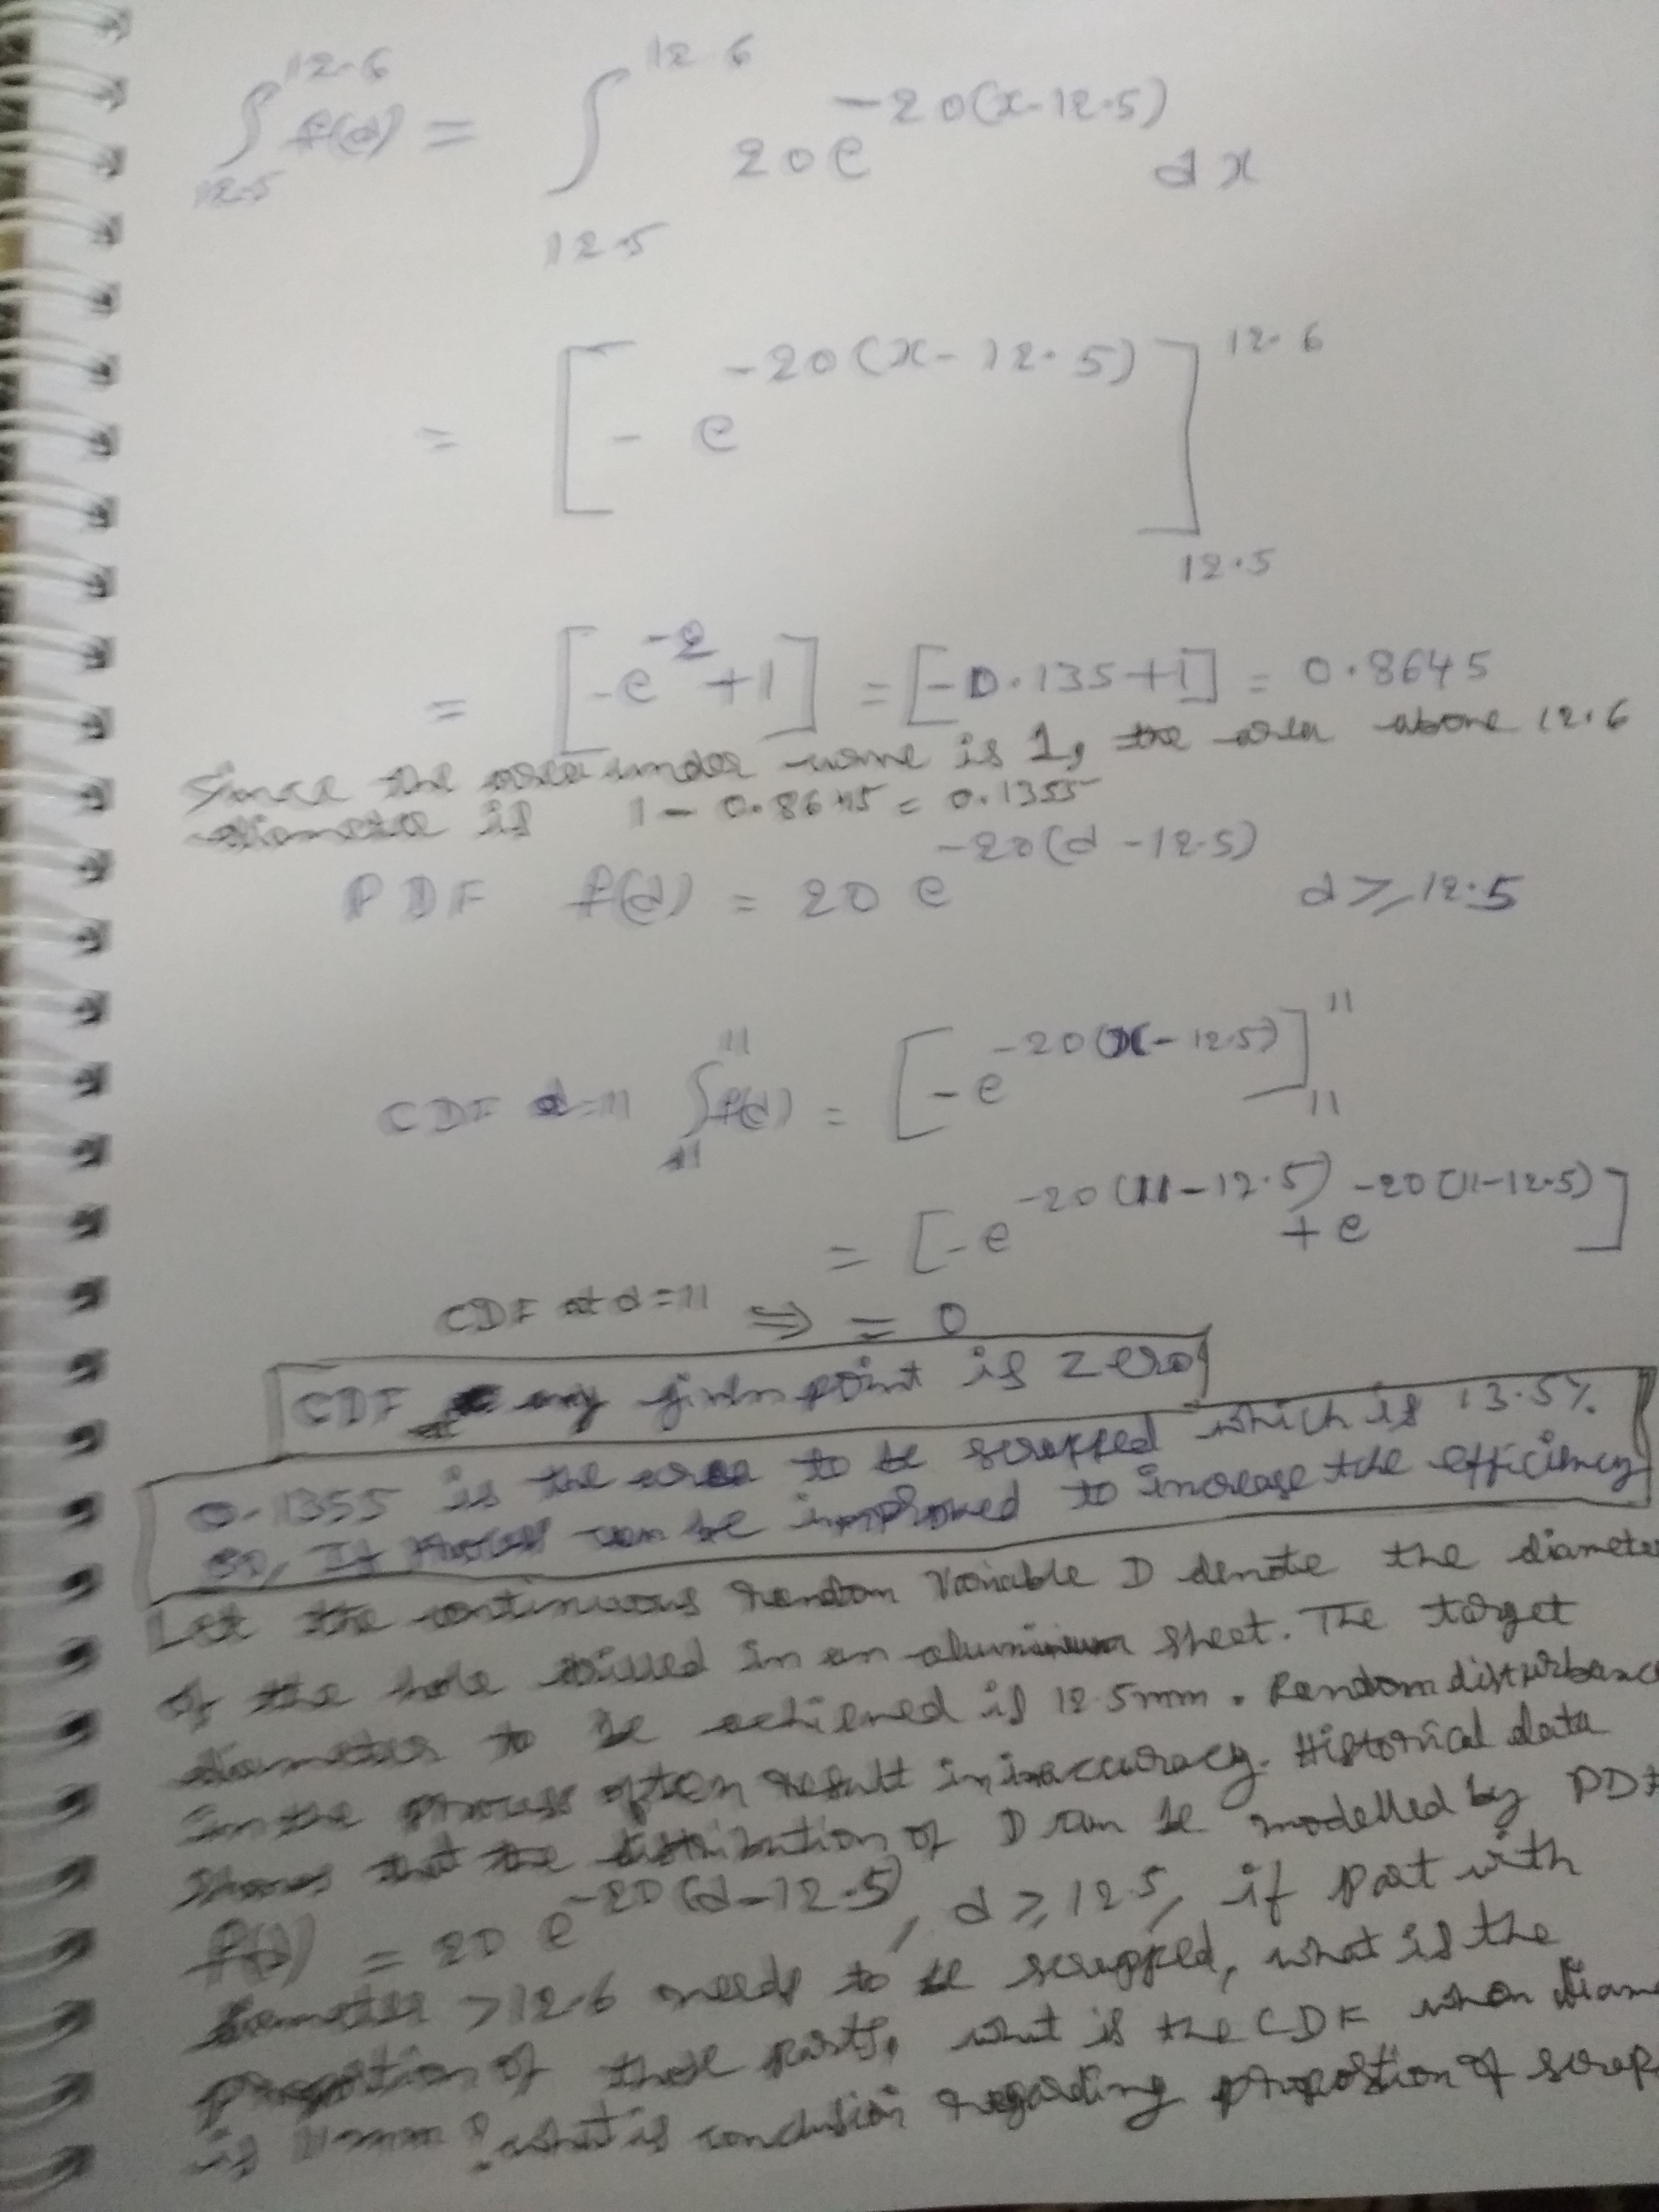 ∫_{12.5}^{12.6} f(d) = ∫_{12.5}^{12.6} 20 e^{-20(x-12.5)} dx
= [ - e^{-20(x-12.5)} ]_{12.5}^{12.6}
= [-e^{-2} + 1] = [-0.135+1] = 0.8645
Since the area under curve is 1, the area above 12.6
diameter is 1 - 0.8645 = 0.1355
PDF f(d) = 20 e^{-20(d-12.5)} d ≥ 12.5
CDF d=11 ∫_{11}^{11} f(d) = [-e^{-20(x-12.5)}]_{11}^{11}
= [-e^{-20(11-12.5)} + e^{-20(11-12.5)}]
CDF at d=11 ⇒ = 0
CDF any point is zero
0.1355 is the area to be scrapped which is 13.5%.
So, If process can be improved to increase the efficiency
Let the continuous random variable D denote the diameter
of the hole drilled in an aluminium sheet. The target
diameter to be achieved is 12.5mm. Random disturbance
In the process often result in inaccuracy. Historical data
shows that the distribution of D can be modelled by PDF
f(d) = 20 e^{-20(d-12.5)}, d ≥ 12.5, if part with
diameter > 12.6 needs to be scrapped, what is the
proportion of those parts, what is the CDF when diam
is 11 mm? what is conclusion regarding proportion of scrap